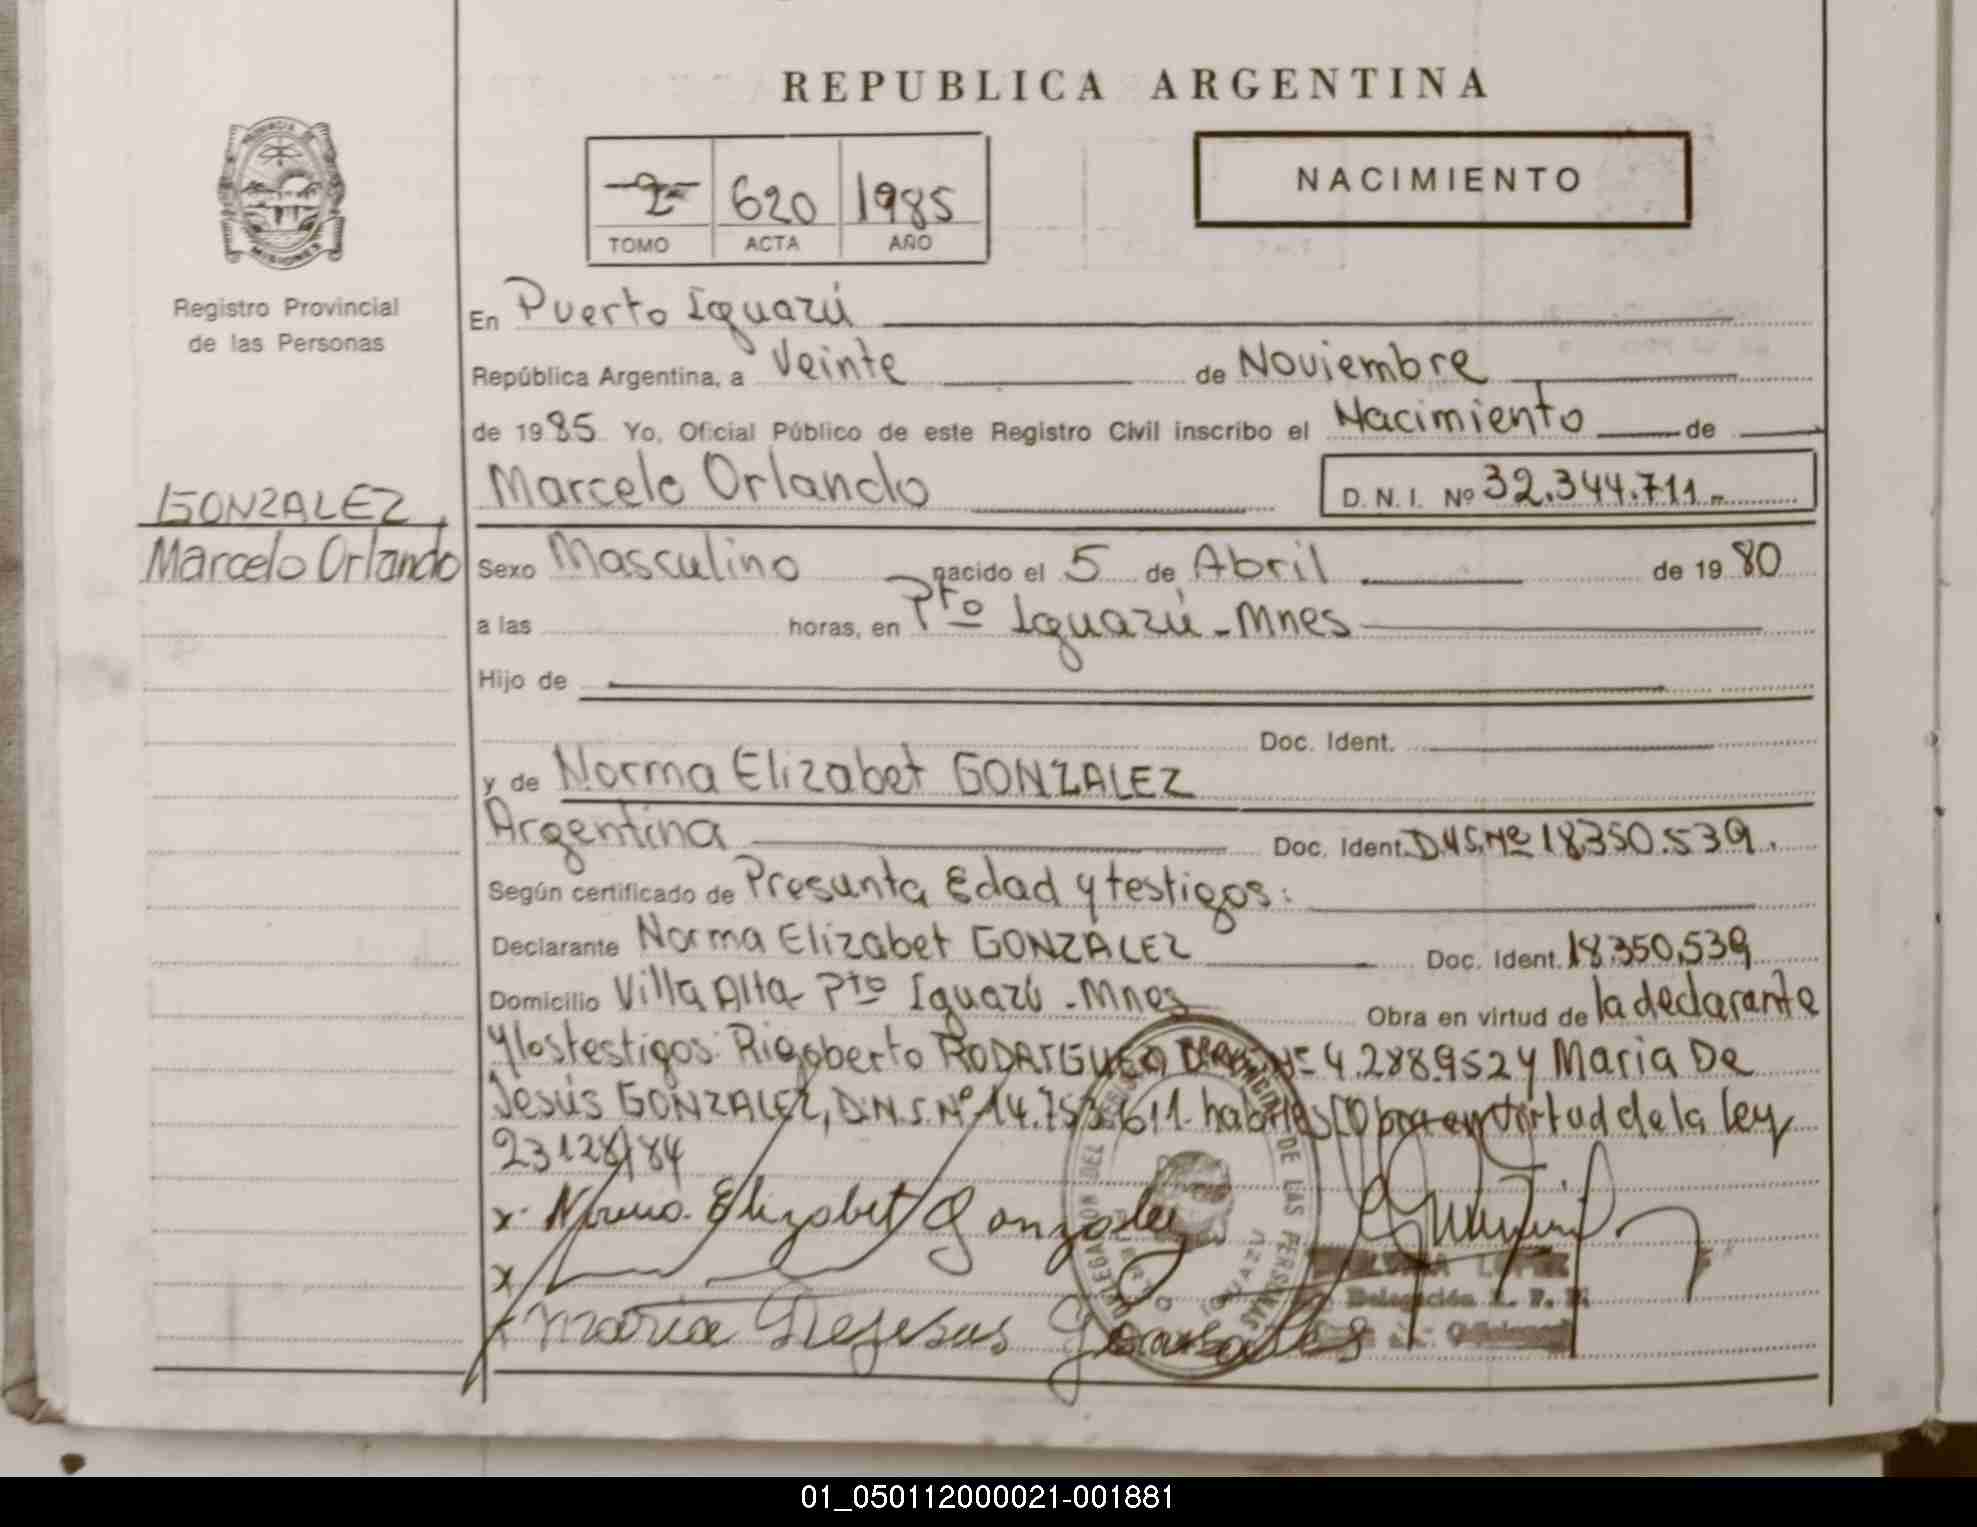 REPUBLICA ARGENTINA
PROVINCIA DE MISIONES
Registro Provincial
de las Personas
2 620 1985
TOMO ACTA AÑO
NACIMIENTO
En Puerto Iguazú
República Argentina, a Veinte de Noviembre
de 1985 Yo, Oficial Público de este Registro Civil inscribo el Nacimiento de
GONZALEZ,
Marcelo Orlando
Marcelo Orlando D. N. I. Nº 32.344.711.-
Sexo Masculino nacido el 5 de Abril de 1980
a las horas, en Pto Iguazú - Mnes
Hijo de
Doc. Ident.
y de Norma Elizabet GONZALEZ
Argentina Doc. Ident. D.N.I. Nº 18.350.539.
Según certificado de Presunta Edad y testigos:
Declarante Norma Elizabet GONZALEZ Doc. Ident. 18.350.539
Domicilio Villa Alta - Pto Iguazú - Mnes Obra en virtud de la declarante
y los testigos: Rigoberto RODRIGUEZ Nº 4.288.952 y Maria De
Jesús GONZALEZ, D.N.I. Nº 14.753.611. habiles Obra en virtud de la ley
23128/84
x. Norma Elizabet Gonzalez
x
x Maria Dejesus Gonzalez
DELEGACION DEL DE LAS PERSONAS
IGUAZU
LOPEZ
Delegación R. P. P.
01_050112000021-001881